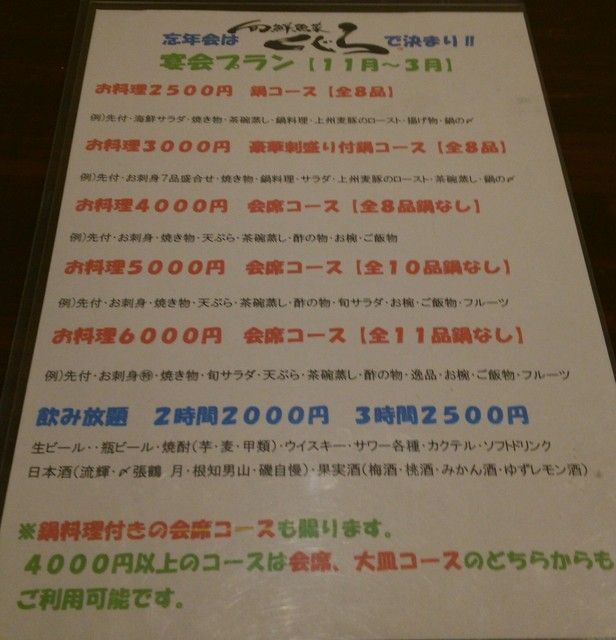 忘年会は 旬鮮魚菜 こぐら で決まり!!
宴会プラン【11月～3月】
お料理2500円 鍋コース【全8品】
例)先付・海鮮サラダ・焼き物・茶碗蒸し・鍋料理・上州麦豚のロースト・揚げ物・鍋の〆
お料理3000円 豪華刺盛り付鍋コース【全8品】
例)先付・お刺身7品盛合せ・焼き物・鍋料理・サラダ・上州麦豚のロースト・茶碗蒸し・鍋の〆
お料理4000円 会席コース【全8品鍋なし】
例)先付・お刺身・焼き物・天ぷら・茶碗蒸し・酢の物・お椀・ご飯物
お料理5000円 会席コース【全10品鍋なし】
例)先付・お刺身・焼き物・天ぷら・茶碗蒸し・酢の物・旬サラダ・お椀・ご飯物・フルーツ
お料理6000円 会席コース【全11品鍋なし】
例)先付・お刺身㊕・焼き物・旬サラダ・天ぷら・茶碗蒸し・酢の物・逸品・お椀・ご飯物・フルーツ
飲み放題 2時間2000円 3時間2500円
生ビール・・瓶ビール・焼酎(芋・麦・甲類)・ウイスキー・サワー各種・カクテル・ソフトドリンク
日本酒(流輝・〆張鶴 月・根知男山・磯自慢)・果実酒(梅酒・桃酒・みかん酒・ゆずレモン酒)
※鍋料理付きの会席コースも賜ります。
4000円以上のコースは会席、大皿コースのどちらからも
ご利用可能です。